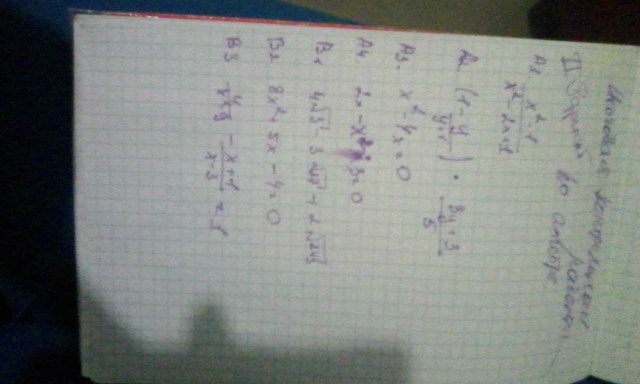 Итоговая контрольная работа
II Вариант по алгебре
A1. x²-1 / x²-2x+1
A2 (1 - y/y+1) · 3y+3 / 5
A3. x²-4x=0
A4. 2x-x² 3=0
B1 4√3 - 3 + 2√243
B2 8x²+5x-4=0
B3 4/x+3 - x+1/x-3 = 1